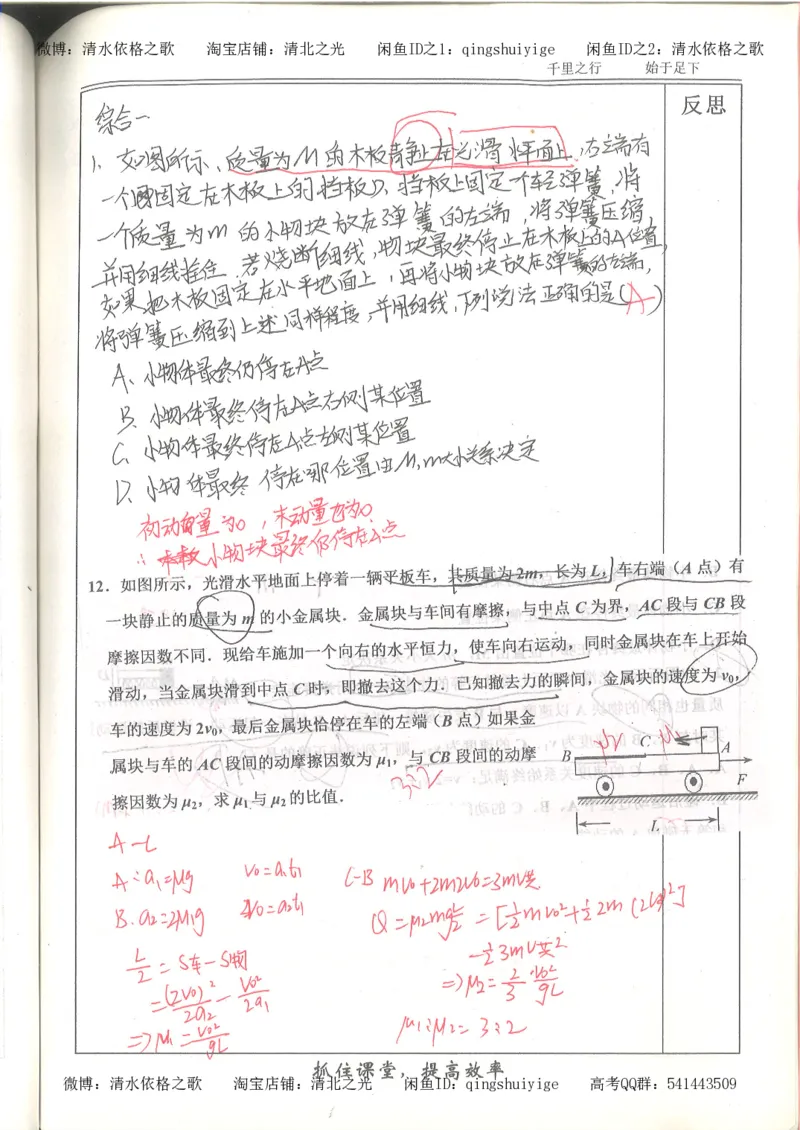 微博：清水依格之歌 淘宝店铺：清北之光 闲鱼ID之1：qingshuiyige 闲鱼ID之2：清水依格之歌
千里之行 始于足下
反思
综合一
1、如图所示、质量为M的木板静止在光滑水平面上,右端有
一个固定在木板上的挡板D,挡板上固定一个轻弹簧,将
一个质量为m的小物块放在弹簧的左端,将弹簧压缩,
并用细线拴住,若烧断细线,物块最终停止在木板上的A位置,
如果把木板固定在水平地面上,再将小物块放在弹簧的左端,
将弹簧压缩到上述同样程度,并用细线,下列说法正确的是(A)
A、小物体最终仍停在A点
B、小物体最终停在A点右侧某位置
C、小物体最终停在A点左侧某位置
D、小物体最终停在哪位置由M,m大小关系决定
初动量为0,末动量也为0
∴小物块最终仍停在A点
12．如图所示，光滑水平地面上停着一辆平板车，其质量为2m，长为L，车右端（A点）有
一块静止的质量为m的小金属块．金属块与车间有摩擦，与中点C为界，AC段与CB段
摩擦因数不同．现给车施加一个向右的水平恒力，使车向右运动，同时金属块在车上开始
滑动，当金属块滑到中点C时，即撤去这个力．已知撤去力的瞬间，金属块的速度为v₀，
车的速度为2v₀，最后金属块恰停在车的左端（B点）如果金
属块与车的AC段间的动摩擦因数为μ₁，与CB段间的动摩
擦因数为μ₂，求μ₁与μ₂的比值．
3:2
B C A F L
A-C
A:a₁=μg v₀=a₁t₁
B.a₂=2μ₁g 2v₀=a₂t₁
L/2=S车-S物
=(2v₀)²/2a₂-v₀²/2a₁
=>μ₁=v₀²/gL
C-B mv₀+2m2v₀=3mv共
Q=μ₂mg L/2=[½mv₀²+½2m(2v₀)²]
-½3mv共²
=>μ₂=2/3 v₀²/gL
μ₁:μ₂=3:2
抓住课堂，提高效率
微博：清水依格之歌 淘宝店铺：清北之光 闲鱼ID：qingshuiyige 高考QQ群：541443509